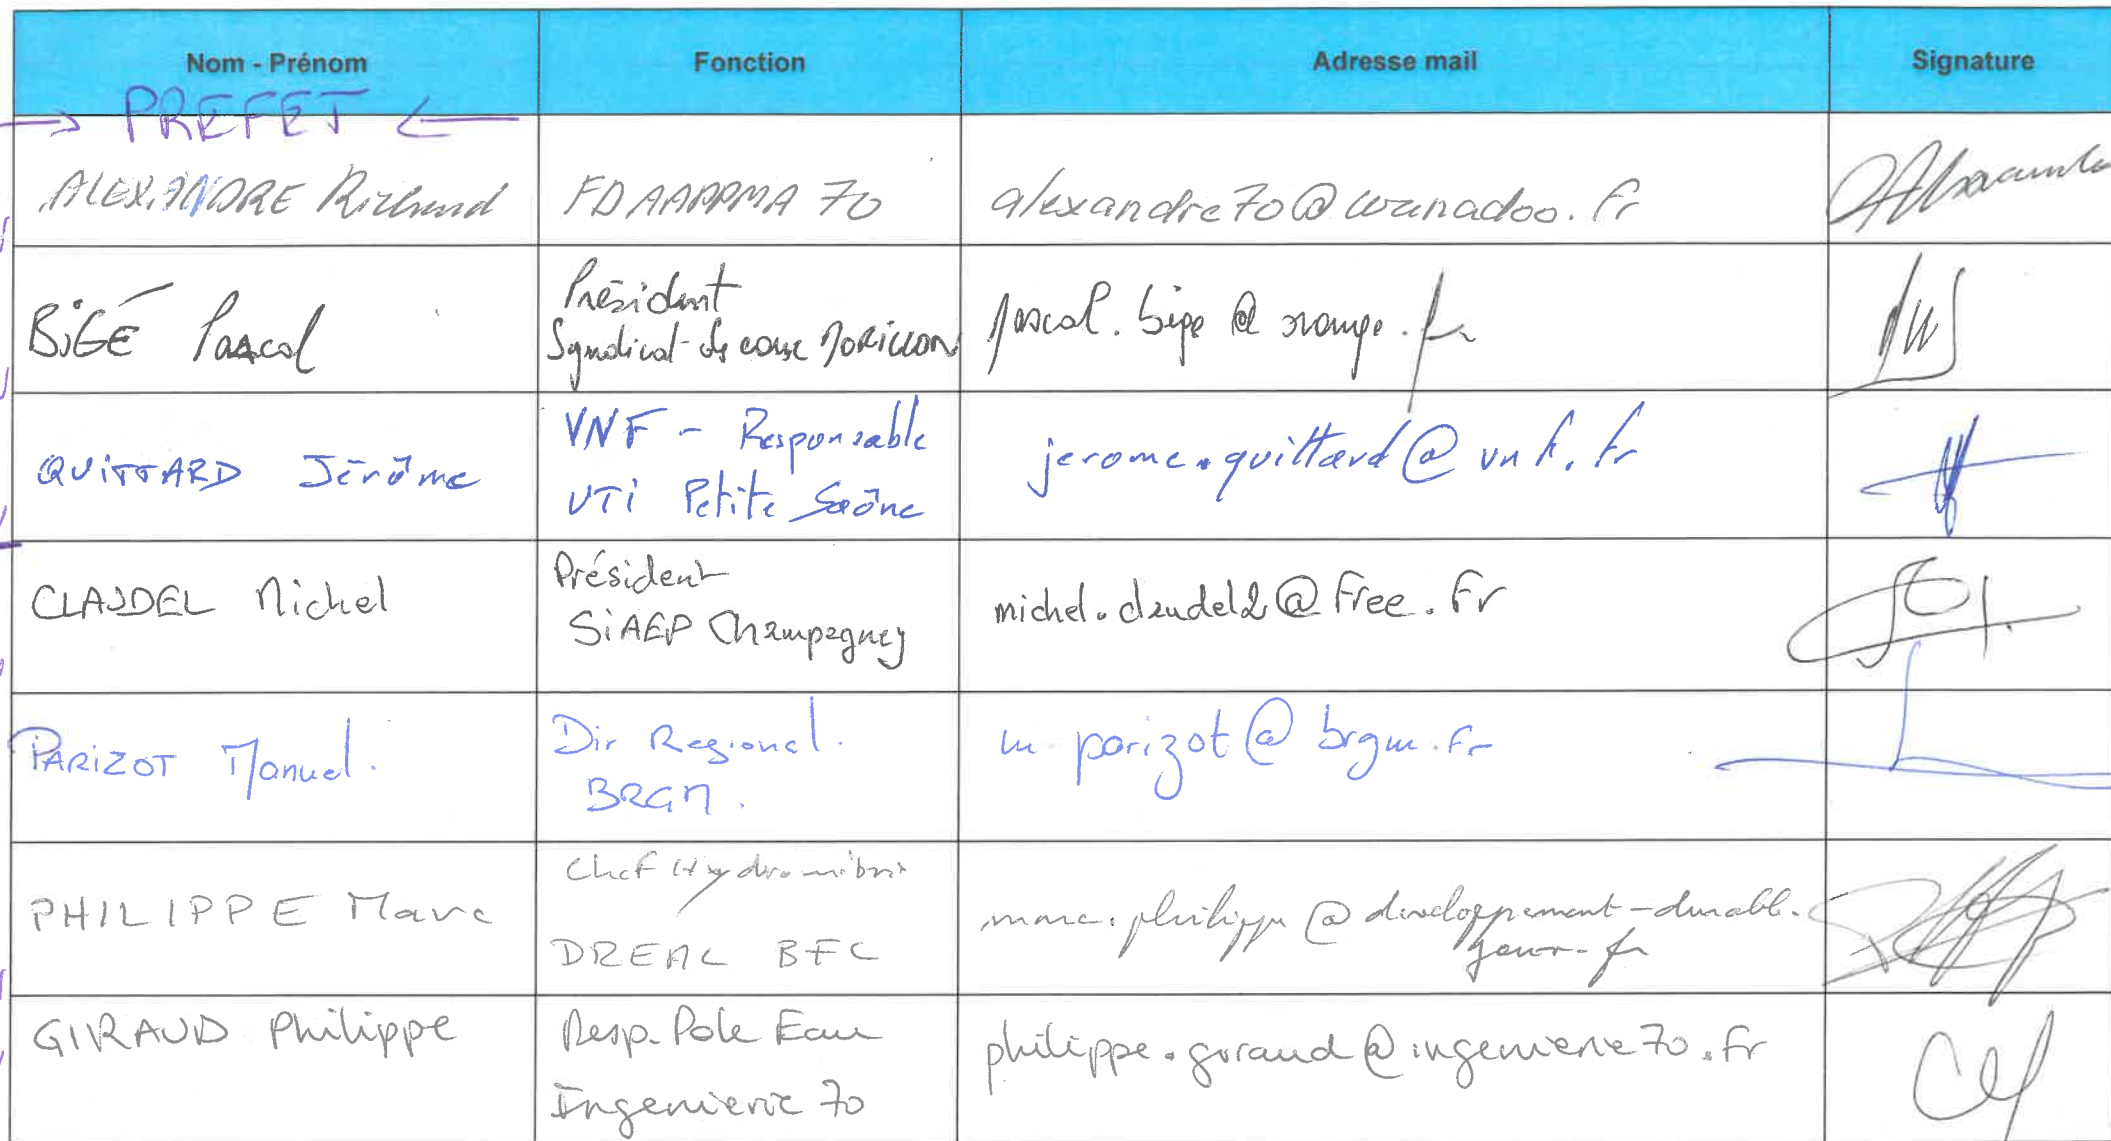 Nom - Prénom Fonction Adresse mail Signature
→ PREFET ←
ALEXANDRE Richard FDAAPPMA 70 alexandre70@wanadoo.fr
BiGÉ Pascal
Président
Syndicat eaux MORILLON
pascal.bige@orange.fr
QUiTTARD Jérôme
VNF - Responsable
UTi Petite Saône
jerome.quittard@vnf.fr
CLAUDEL Michel
Président
SiAEP Champagney
michel.claudel2@free.fr
PARiZOT Manuel.
Dir Regional.
BRGM.
m.parizot@brgm.fr
PHILIPPE Marc
Chef
DREAL BFC
marc.philippe@developpement-durable.
gouv.fr
GIRAUD Philippe
Resp. Pole Eau
Ingenierie 70
philippe.giraud@ingenierie70.fr